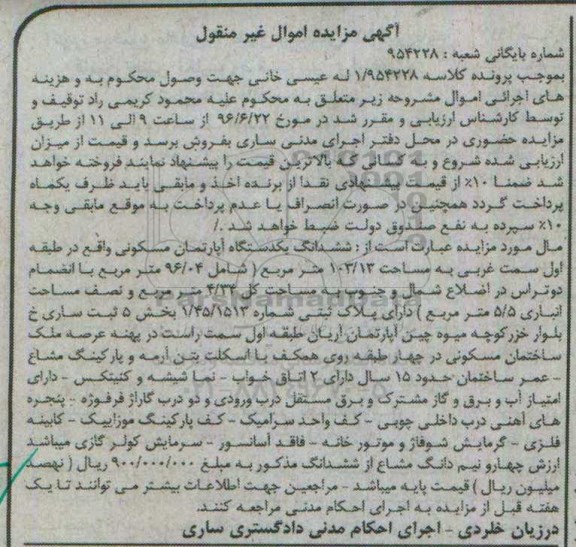 آگهی مزایده اموال غیر منقول
شماره بایگانی شعبه : ۹۵۴۲۲۸
بموجب پرونده کلاسه ۱/۹۵۴۲۲۸ له عیسی خانی جهت وصول محکوم به و هزینه
های اجرائی اموال مشروحه زیر متعلق به محکوم علیه محمود کریمی راد توقیف و
توسط کارشناس ارزیابی و مقرر شد در مورخ ۹۶/۶/۲۲ از ساعت ۹ الی ۱۱ از طریق
مزایده حضوری در محل دفتر اجرای مدنی ساری بفروش برسد و قیمت از میزان
ارزیابی شده شروع و به کسانی که بالاترین قیمت را پیشنهاد نمایند فروخته خواهد
شد ضمنا ۱۰٪ از قیمت پیشنهادی نقدا از برنده اخذ و مابقی باید ظرف یکماه
پرداخت گردد همچنین در صورت انصراف یا عدم پرداخت به موقع مابقی وجه
۱۰٪ سپرده به نفع صندوق دولت ضبط خواهد شد ./
مال مورد مزایده عبارت است از : ششدانگ یکدستگاه آپارتمان مسکونی واقع در طبقه
اول سمت غربی به مساحت ۱۰۳/۱۳ متر مربع ( شامل ۹۶/۰۴ متر مربع با انضمام
دوتراس در اضلاع شمال و جنوب به مساحت کل ۴/۳۴ متر مربع و نصف مساحت
انباری ۵/۵ متر مربع ) دارای پلاک ثبتی شماره ۱/۴۵/۱۵۱۳ بخش ۵ ثبت ساری خ
بلوار خزر کوچه میوه چین آپارتمان آریان طبقه اول سمت راست در پهنه عرصه ملک
ساختمان مسکونی در چهار طبقه روی همکف با اسکلت بتن آرمه و پارکینگ مشاع
- عمر ساختمان حدود ۱۵ سال دارای ۲ اتاق خواب - نما شیشه و کنیتکس - دارای
امتیاز آب و برق و گاز مشترک و برق مستقل درب ورودی و دو درب گاراژ فرفوژه - پنجره
های آهنی درب داخلی چوبی - کف واحد سرامیک - کف پارکینگ موزاییک - کابینه
فلزی - گرمایش شوفاژ و موتور خانه - فاقد آسانسور - سرمایش کولر گازی میباشد
ارزش چهارو نیم دانگ مشاع از ششدانگ مذکور به مبلغ ۹۰۰/۰۰۰/۰۰۰ ریال ( نهصد
میلیون ریال ) قیمت پایه میباشد - مراجعین جهت اطلاعات بیشتر می توانند تا یک
هفته قبل از مزایده به اجرای احکام مدنی مراجعه کنند.
درزیان خلردی - اجرای احکام مدنی دادگستری ساری